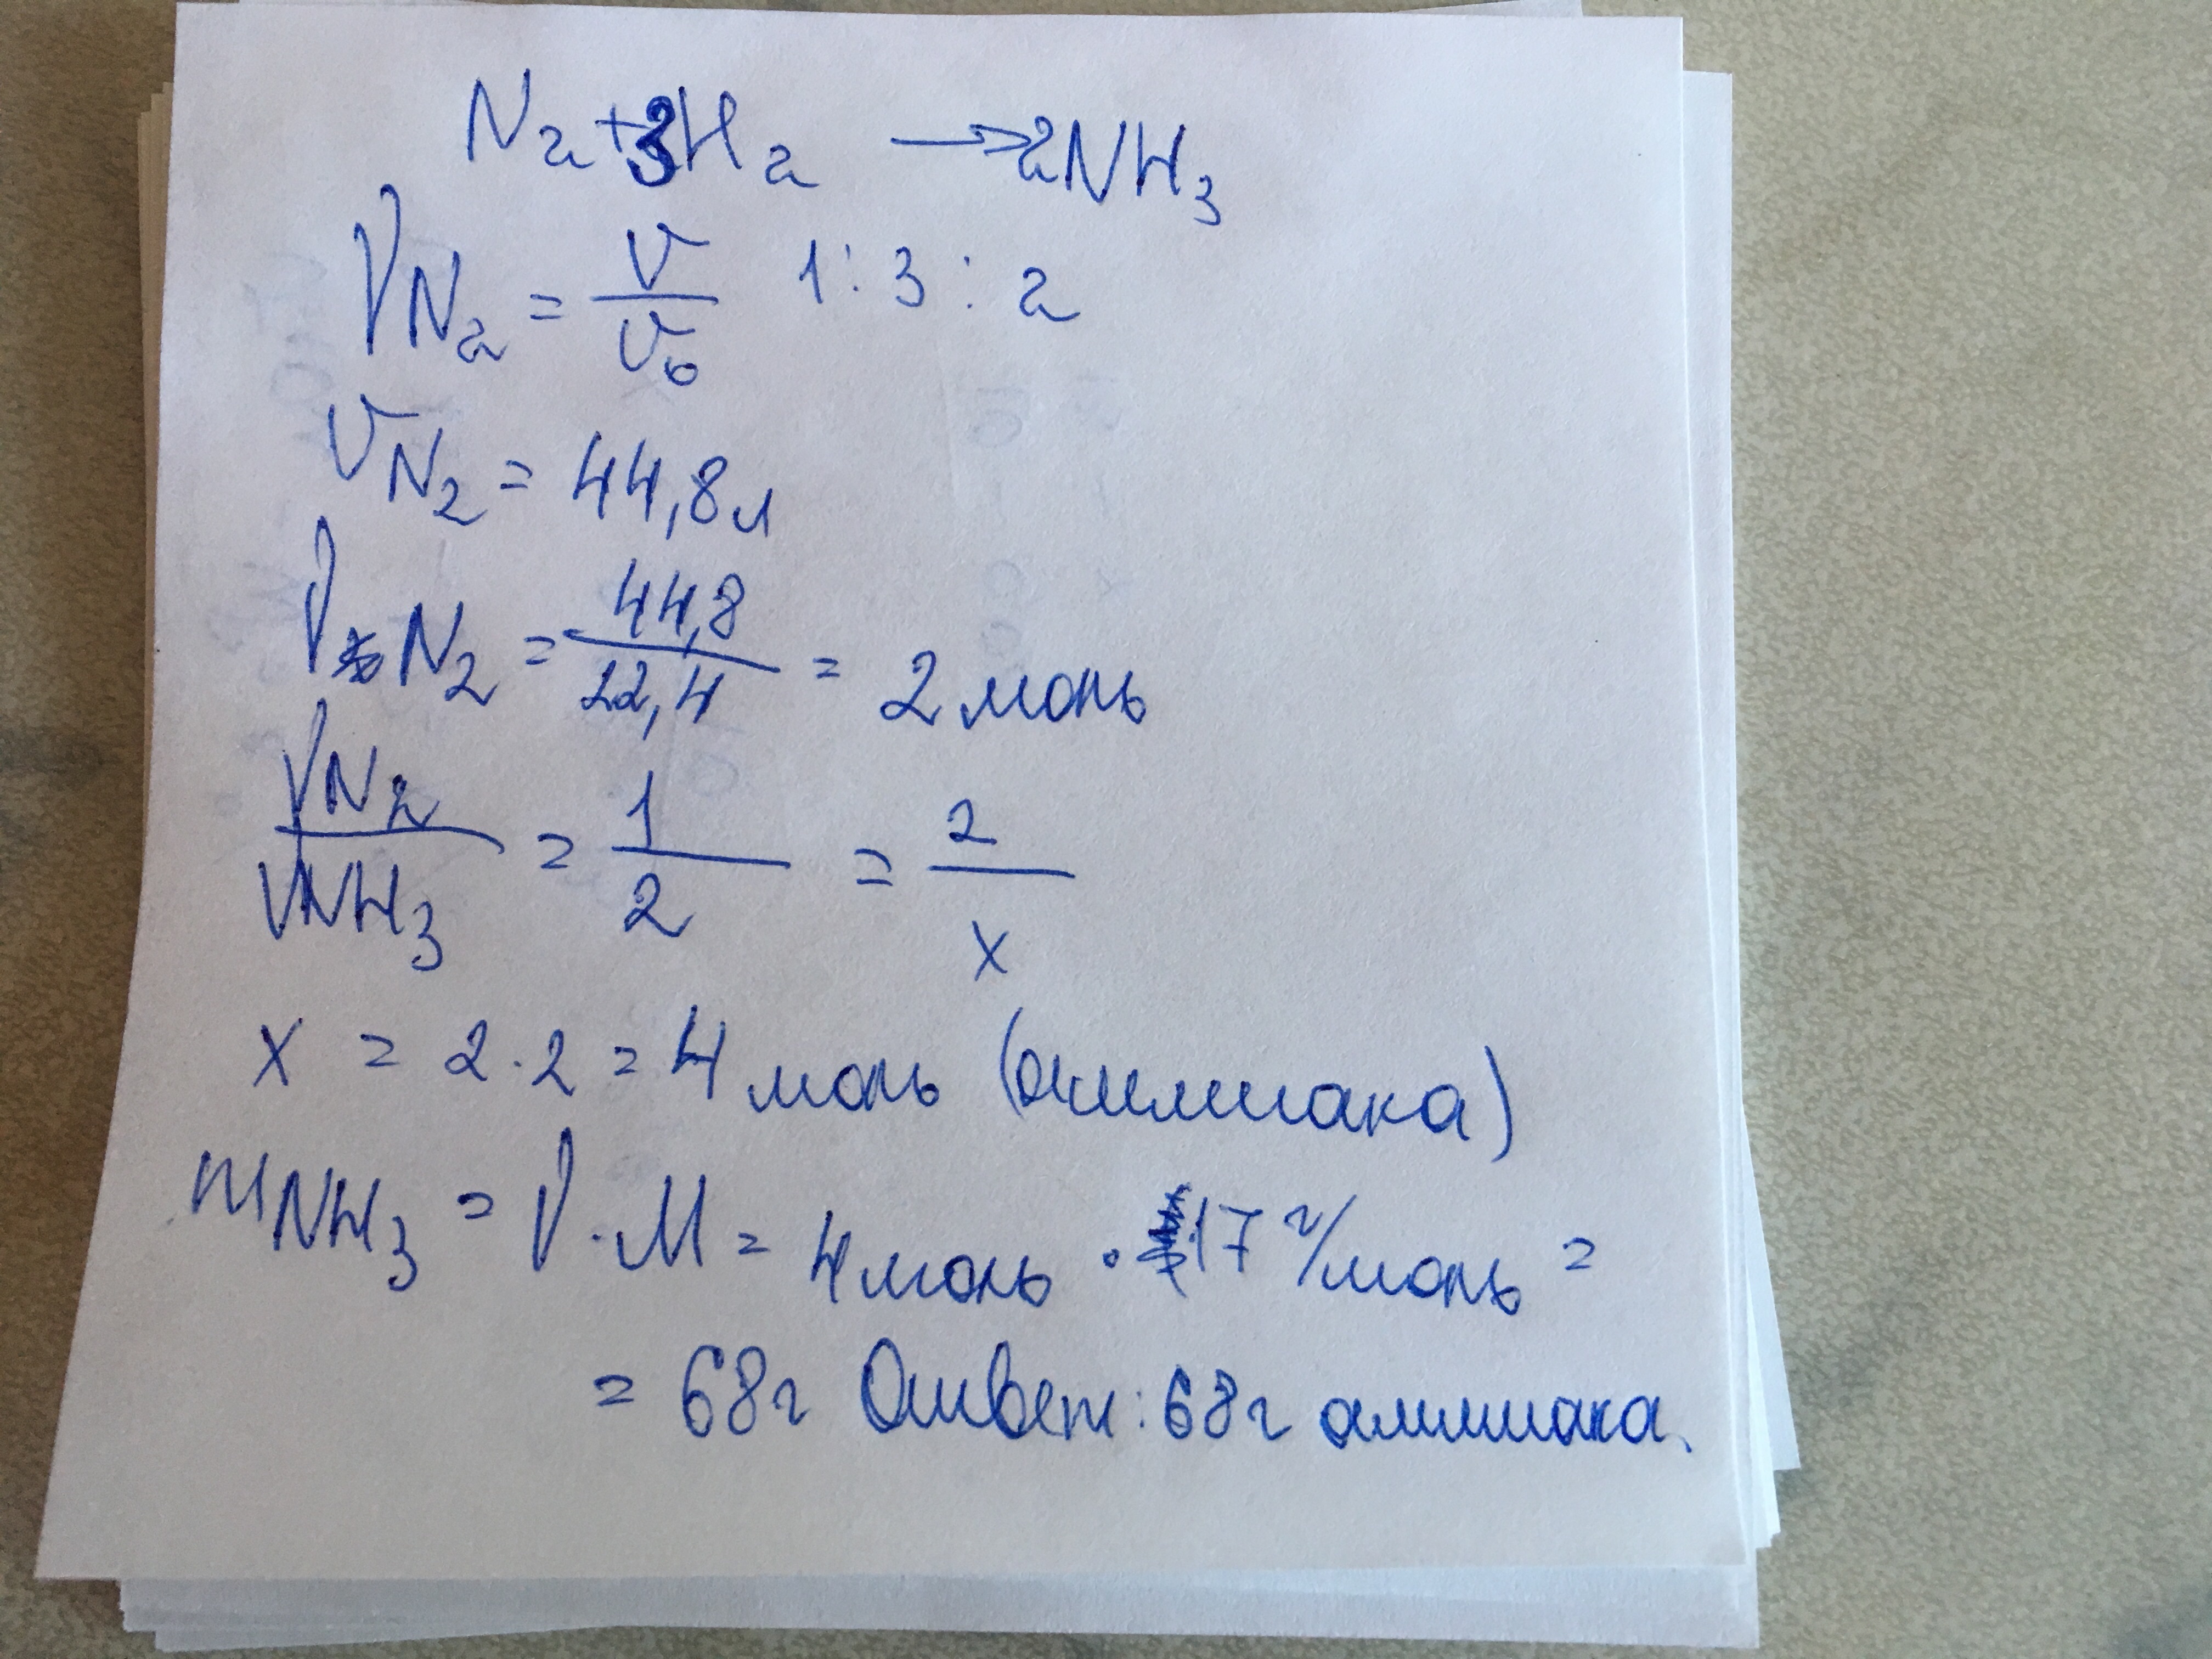 N₂ + 3H₂ → 2NH₃
νN₂ = V/V₀ 1 : 3 : 2
VN₂ = 44,8 л
νN₂ = 44,8/22,4 = 2 моль
νN₂/νNH₃ = 1/2 = 2/x
x = 2 · 2 = 4 моль (аммиака)
mNH₃ = ν · M = 4 моль · 17 г/моль =
= 68 г Ответ: 68 г аммиака.